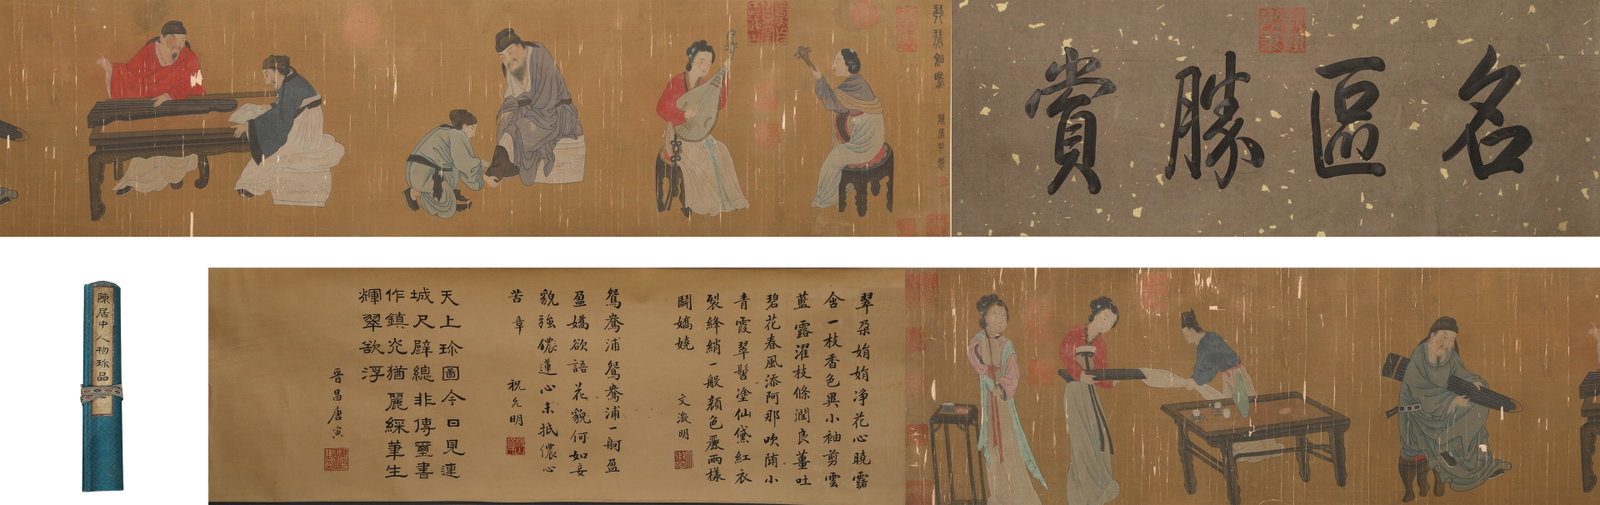 名區勝賞
陳居中人物珍品
翠朶娟娟净花心曉露
含一枝香色異小袖剪雲
藍露濯枝條潤良薑吐
碧花春風添阿那吹隨小
青霞翠髻塗仙黛紅衣
裂絳綃一般顏色兩樣
鬪嬌嬈
文徵明
鴛鴦浦鴛鴦浦一舸盈
盈嬌欲語花貌何如妾
貌強儂蓮心未抵儂心
苦章
祝允明
天上珍圖今日見連
城尺璧總非傳璽書
作鎮炎猶麗綵筆生
輝翠欲浮
晉昌唐寅